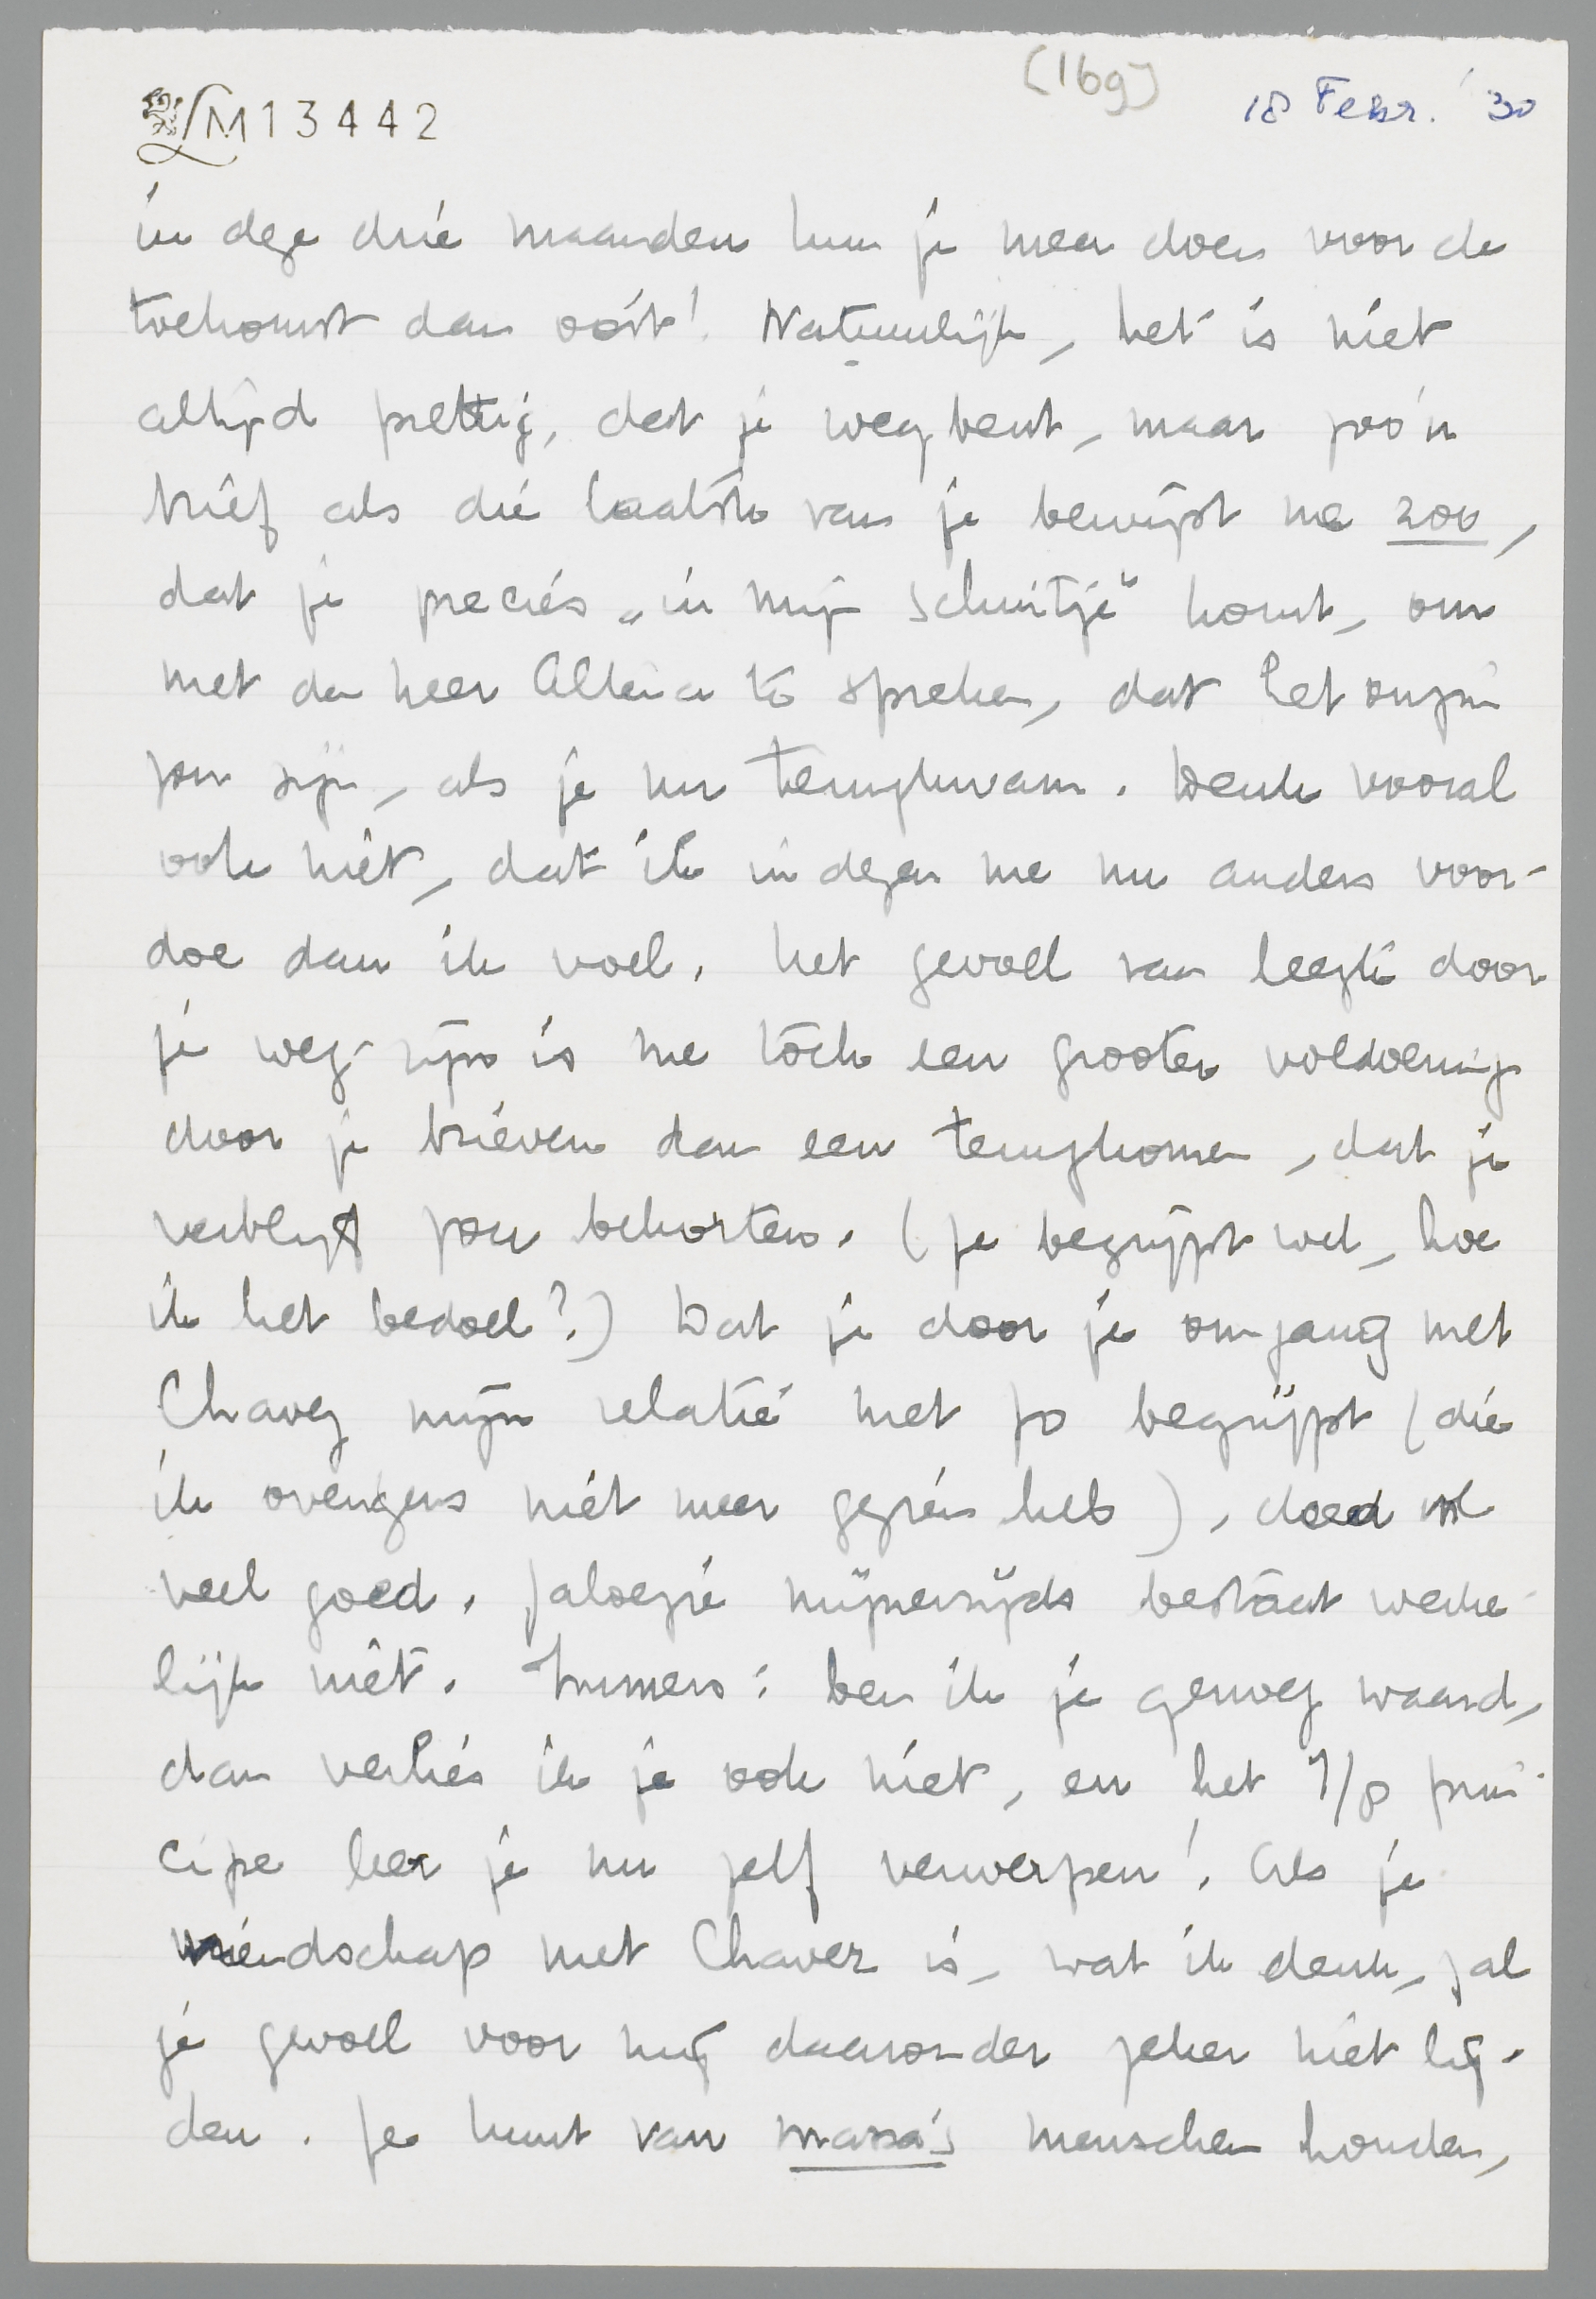 (169)
LM13442
18 Febr. '30
in deze drie maanden kun je meer doen voor de
toekomst dan ooit! Natuurlijk, het is niet
altijd prettig, dat je weg bent, maar zoo'n
brief als die laatste van je bewijst me zoo,
dat je precies „in mijn schuitje" komt, om
met den heer Altena te spreken, dat het onzin
zou zijn, als je nu terugkwam. Denk vooral
ook niet, dat ik in dezen me nu anders voor-
doe dan ik voel. Het gevoel van leegte door
je weg-zijn is me tóch een grooter voldoening
door je brieven dan een terugkomen, dat je
verblijf zou bekorten. (Je begrijpt wel, hoe
ik het bedoel?) Dat je door je omgang met
Chavez mijn relatie met Jo begrijpt (die
ik overigens niet meer gezien heb), doed
veel goed. Jaloezie mijnerzijds bestaat werke-
lijk niet. Immers: ben ik je genoeg waard,
dan verlies ik je ook niet, en het 1/8 prin-
cipe leer je nu zelf verwerpen! Als je
vriendschap met Chavez is, wat ik denk, zal
je gevoel voor mij daaronder zeker niet lij-
den. Je kunt van massa's menschen houden,